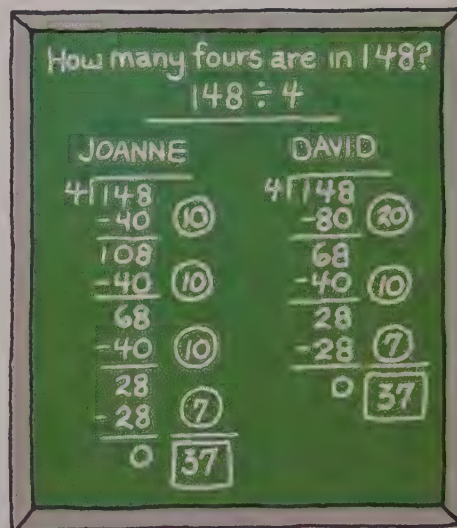 How many fours are in 148?
148 ÷ 4
JOANNE
4 148
-40 10
108
-40 10
68
-40 10
28
-28 7
0 37
DAVID
4 148
-80 20
68
-40 10
28
-28 7
0 37